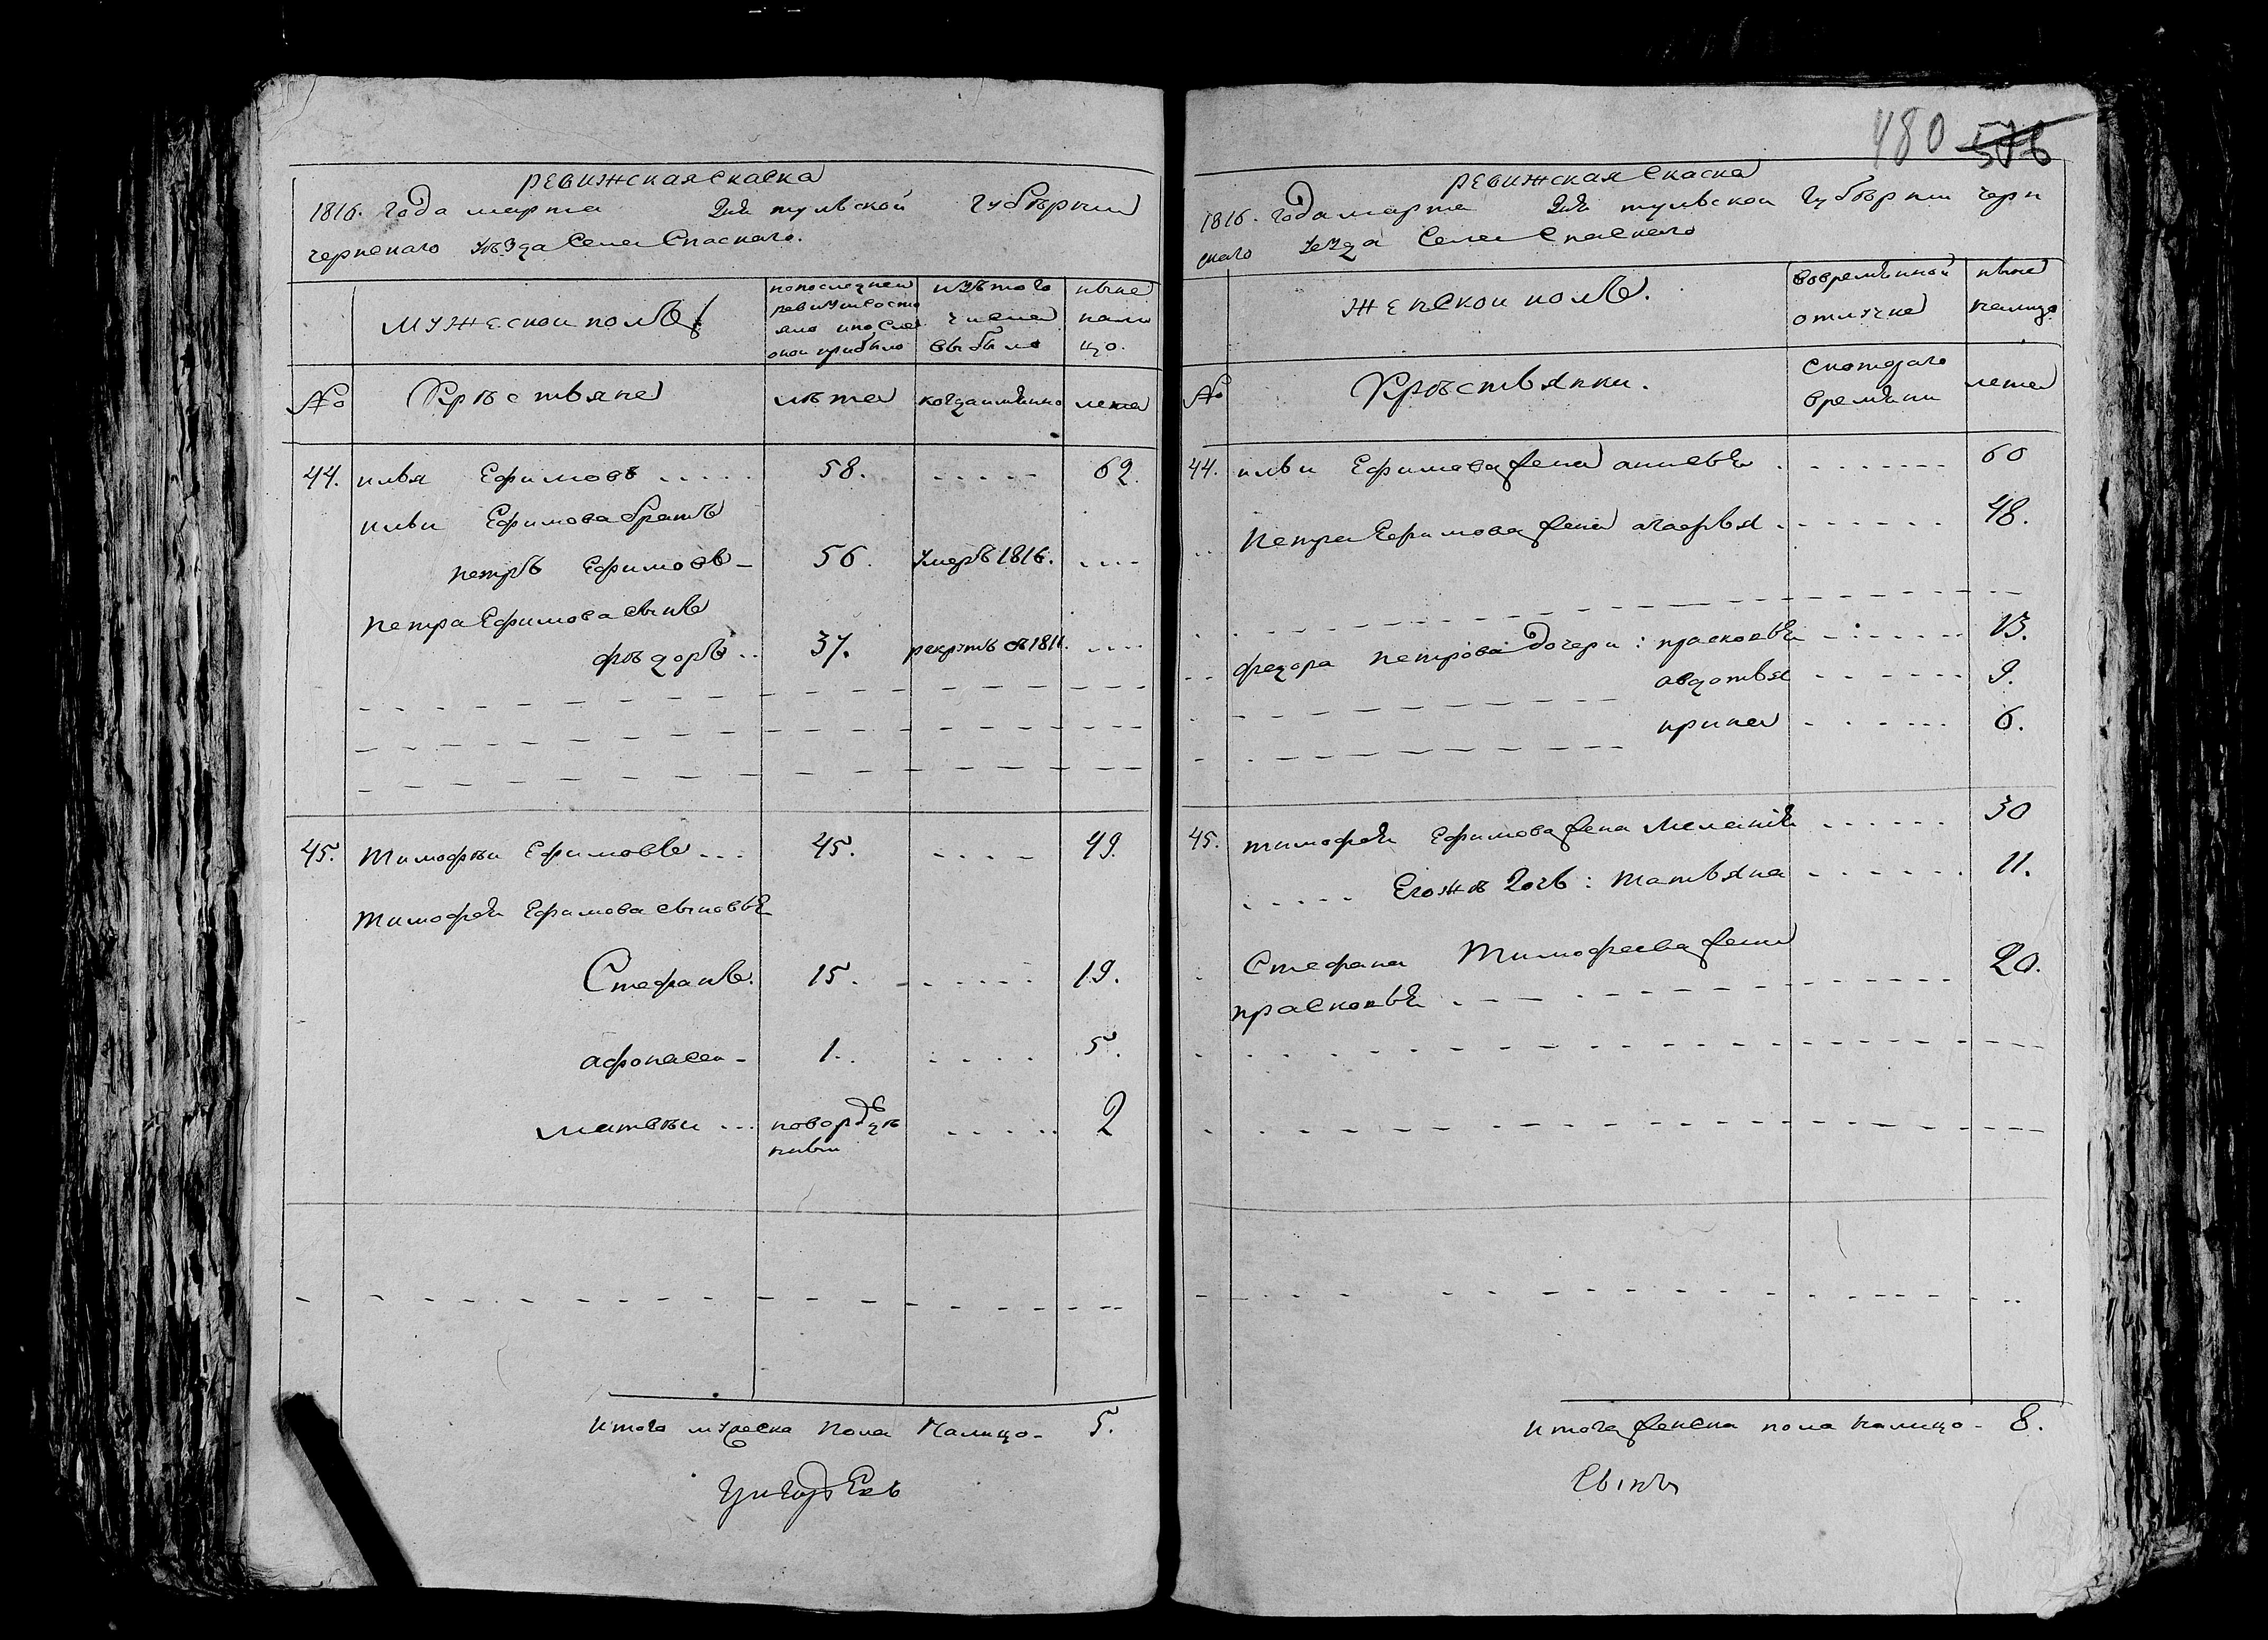 480 576
РЕВИЖСКАЯ СКАСКА
1816. Года марта дня тульской Губѣрнии
чернскаго уѣзда Села Спаскаго.
МУЖЕСКОИ ПОЛЪ
попоследнеи ревизиисосто яло ипосле онои прибыло
изътого числа выбыло
ныне нали цо.
№ Крѣстьяне лѣта когдаимянно лета
44. илья Ефимовъ 58. 62.
ильи Ефимова братъ
петръ Ефимовъ 56. умеръ 1816.
петра Ефимова сынъ
фѣдоръ 37. рекрутъ въ 1811.
45. тимофѣи Ефимовъ 45. 49.
тимофея Ефимова сыновья
Стефанъ. 15. 19.
афонасеи 1. 5.
матвѣи новорож 2
итого мужеска пола Налицо 5.
РЕВИЖСКАЯ Скаска
1816. года марта дня тульскои Губѣрнии черн
скаго уезда Села Спаскаго
женскои полъ.
вовремянной отлучке
ныне налицо
№ Крѣстьянки. скотораго времяни лета
44. ильи Ефимова жена 60
петра Ефимова жена агафья 48.
федора петрова дочери: прасковья 13.
авдотья 9.
ирина 6.
45. тимофея Ефимова жена Мелания 30
Егожъ дочь: татьяна 11.
Стефана Тимофеева жена
прасковья 20.
итого женска пола налицо 8.
Сынъ